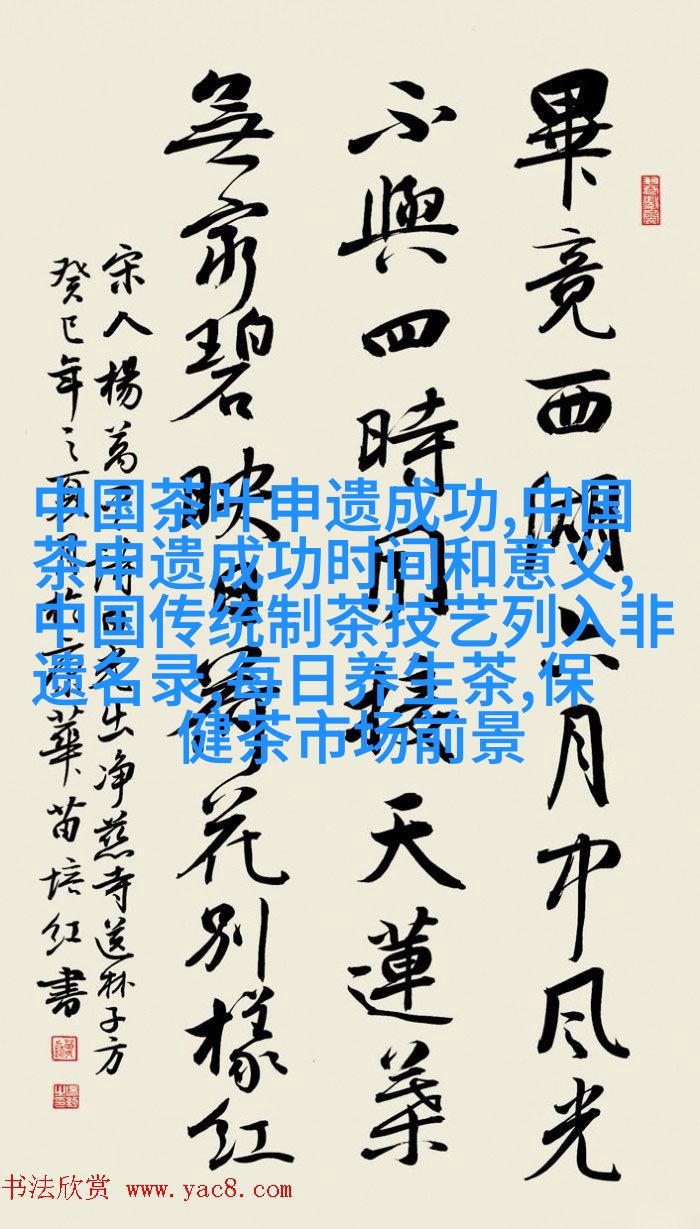 畢竟西湖六月中风光
不與四時同接天蓮葉
無穷碧映日荷花别樣红
宋人楊萬里詩曉出净慈寺送林子方
癸巳年之夏月於京華苗培红書
中国茶叶申遗成功,中国
茶申遗成功时间和意义,
中国传统制茶技艺列入非
遗名录,每日养生茶,保
健茶市场前景
书法欣赏 www.yac8.com